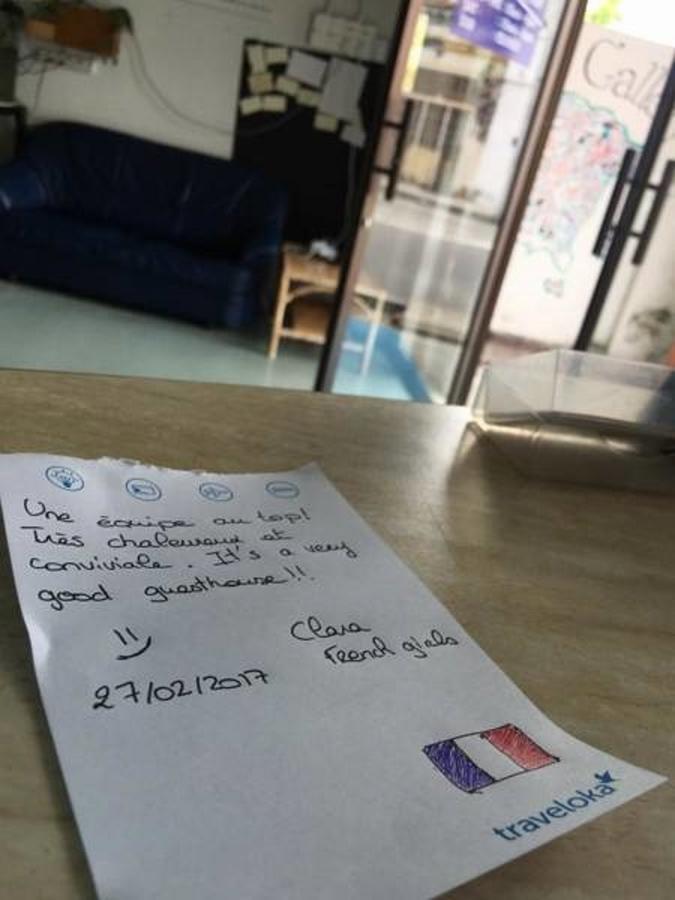 Call
Une équipe au top!
Très chaleureux et
conviviale. It's a very
good guesthouse!!
Clara
French girls
27/02/2017
traveloka